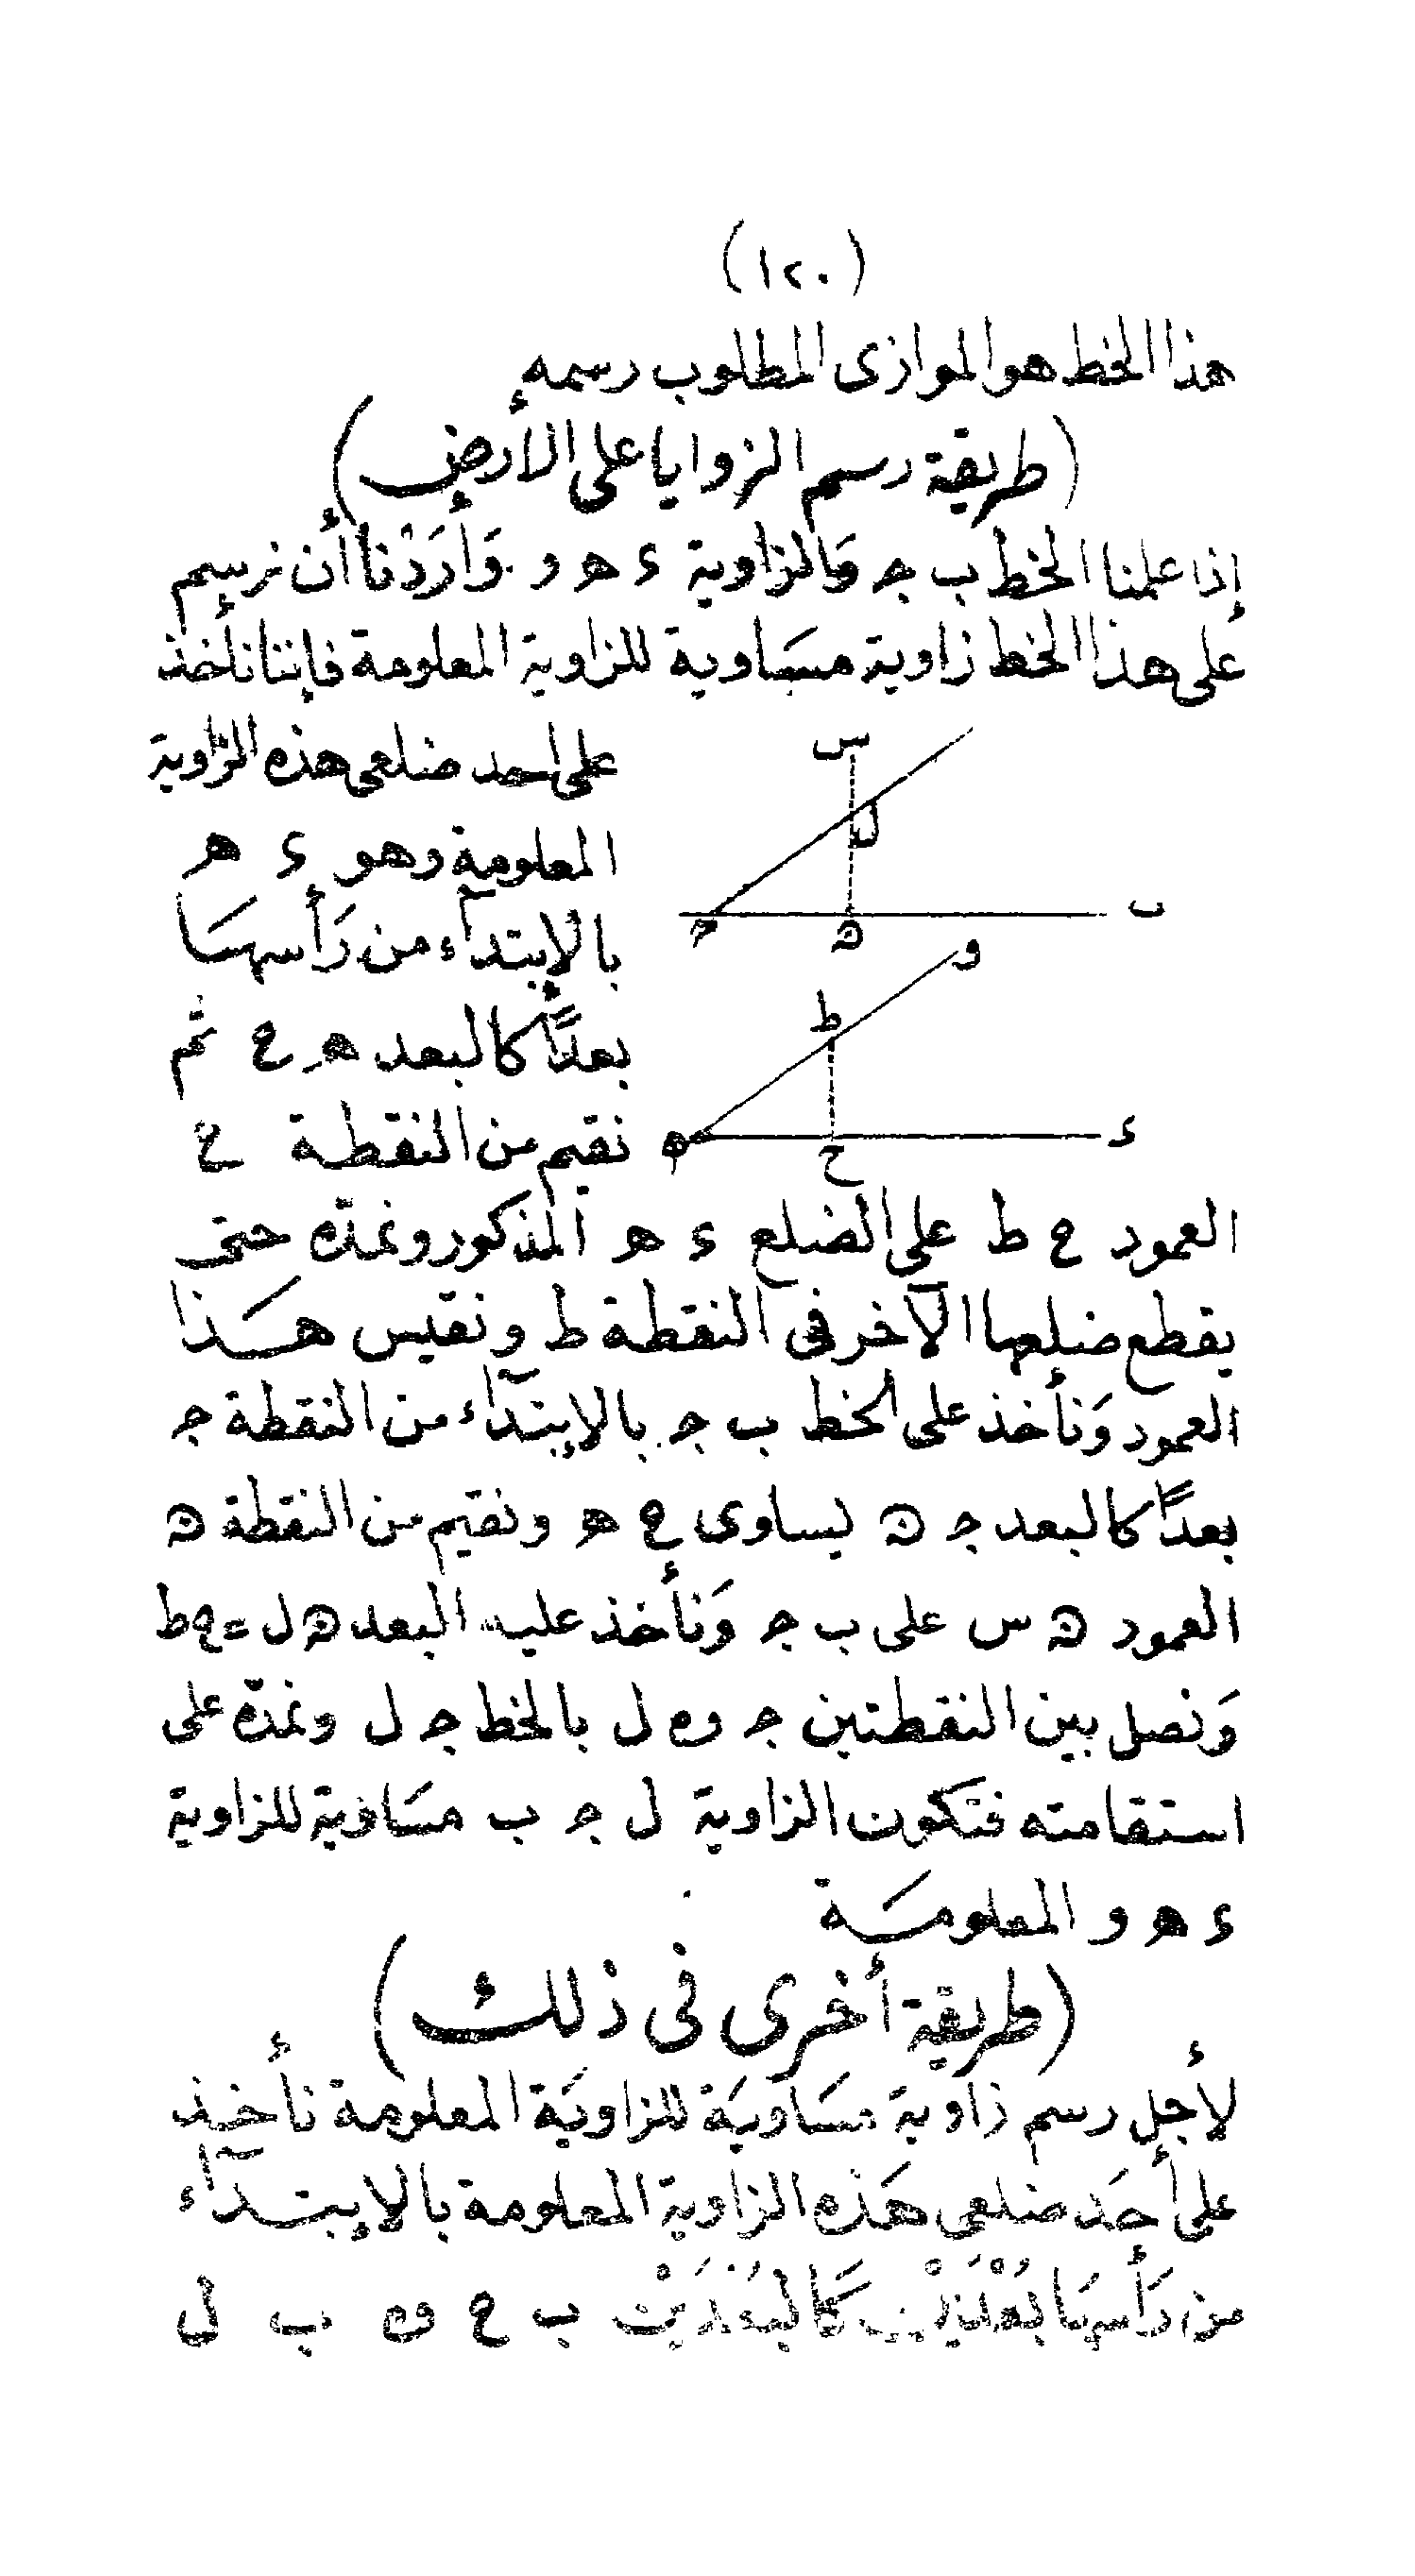 (١٢٠)
هذا الخط هو الموازى المطلوب رسمه
(طريقة رسم الزوايا على الأرض)
إذا علمنا الخط ب ج وَالزاوية ء ھ و وَأرَدْنا أن نرسم
على هذا الخط زاوية مسَاوية للزاوية المعلومة فإننا نأخذ
على احد ضلعى هذه الزاوية
المعلومة وهو ء ھ
بالإبتدآء من رَأسهـَا
بعدًا كالبعد ھ ح ثم
نقيم من النقطة ح
س
ل
ب
ج
ں
و
ط
ء
ھ
ح
العمود ح ط على الضلع ء ھ المذكور ونمدّه حتى
يقطع ضلعها الآخر فى النقطة ط ونقيس هـَـذا
العمود وَنأخذ على الخط ب ج بالإبتدآء من النقطة ج
بعدًا كالبعد ج ں يساوى ح ھ ونقيم من النقطة ں
العمود ں س على ب ج وَنأخذ عليه البعد ں ل = ح ط
وَنصل بين النقطتين ج و ل بالخط ج ل ونمدّه على
استقامته فتكون الزاوية ل ج ب مسَاوية للزاوية
ء ھ و المعلومـَـة
(طريقة أخرى فى ذلك)
لأجل رسم زاوية مسَاويَة للزاويَة المعلومة نأخـذ
على أحَد ضلعى هَذه الزاوية المعلومة بالإبتـدآء
من رَأسهَا بُعْدَيْن كَالبُعْدَيْن ب ح و ب ل